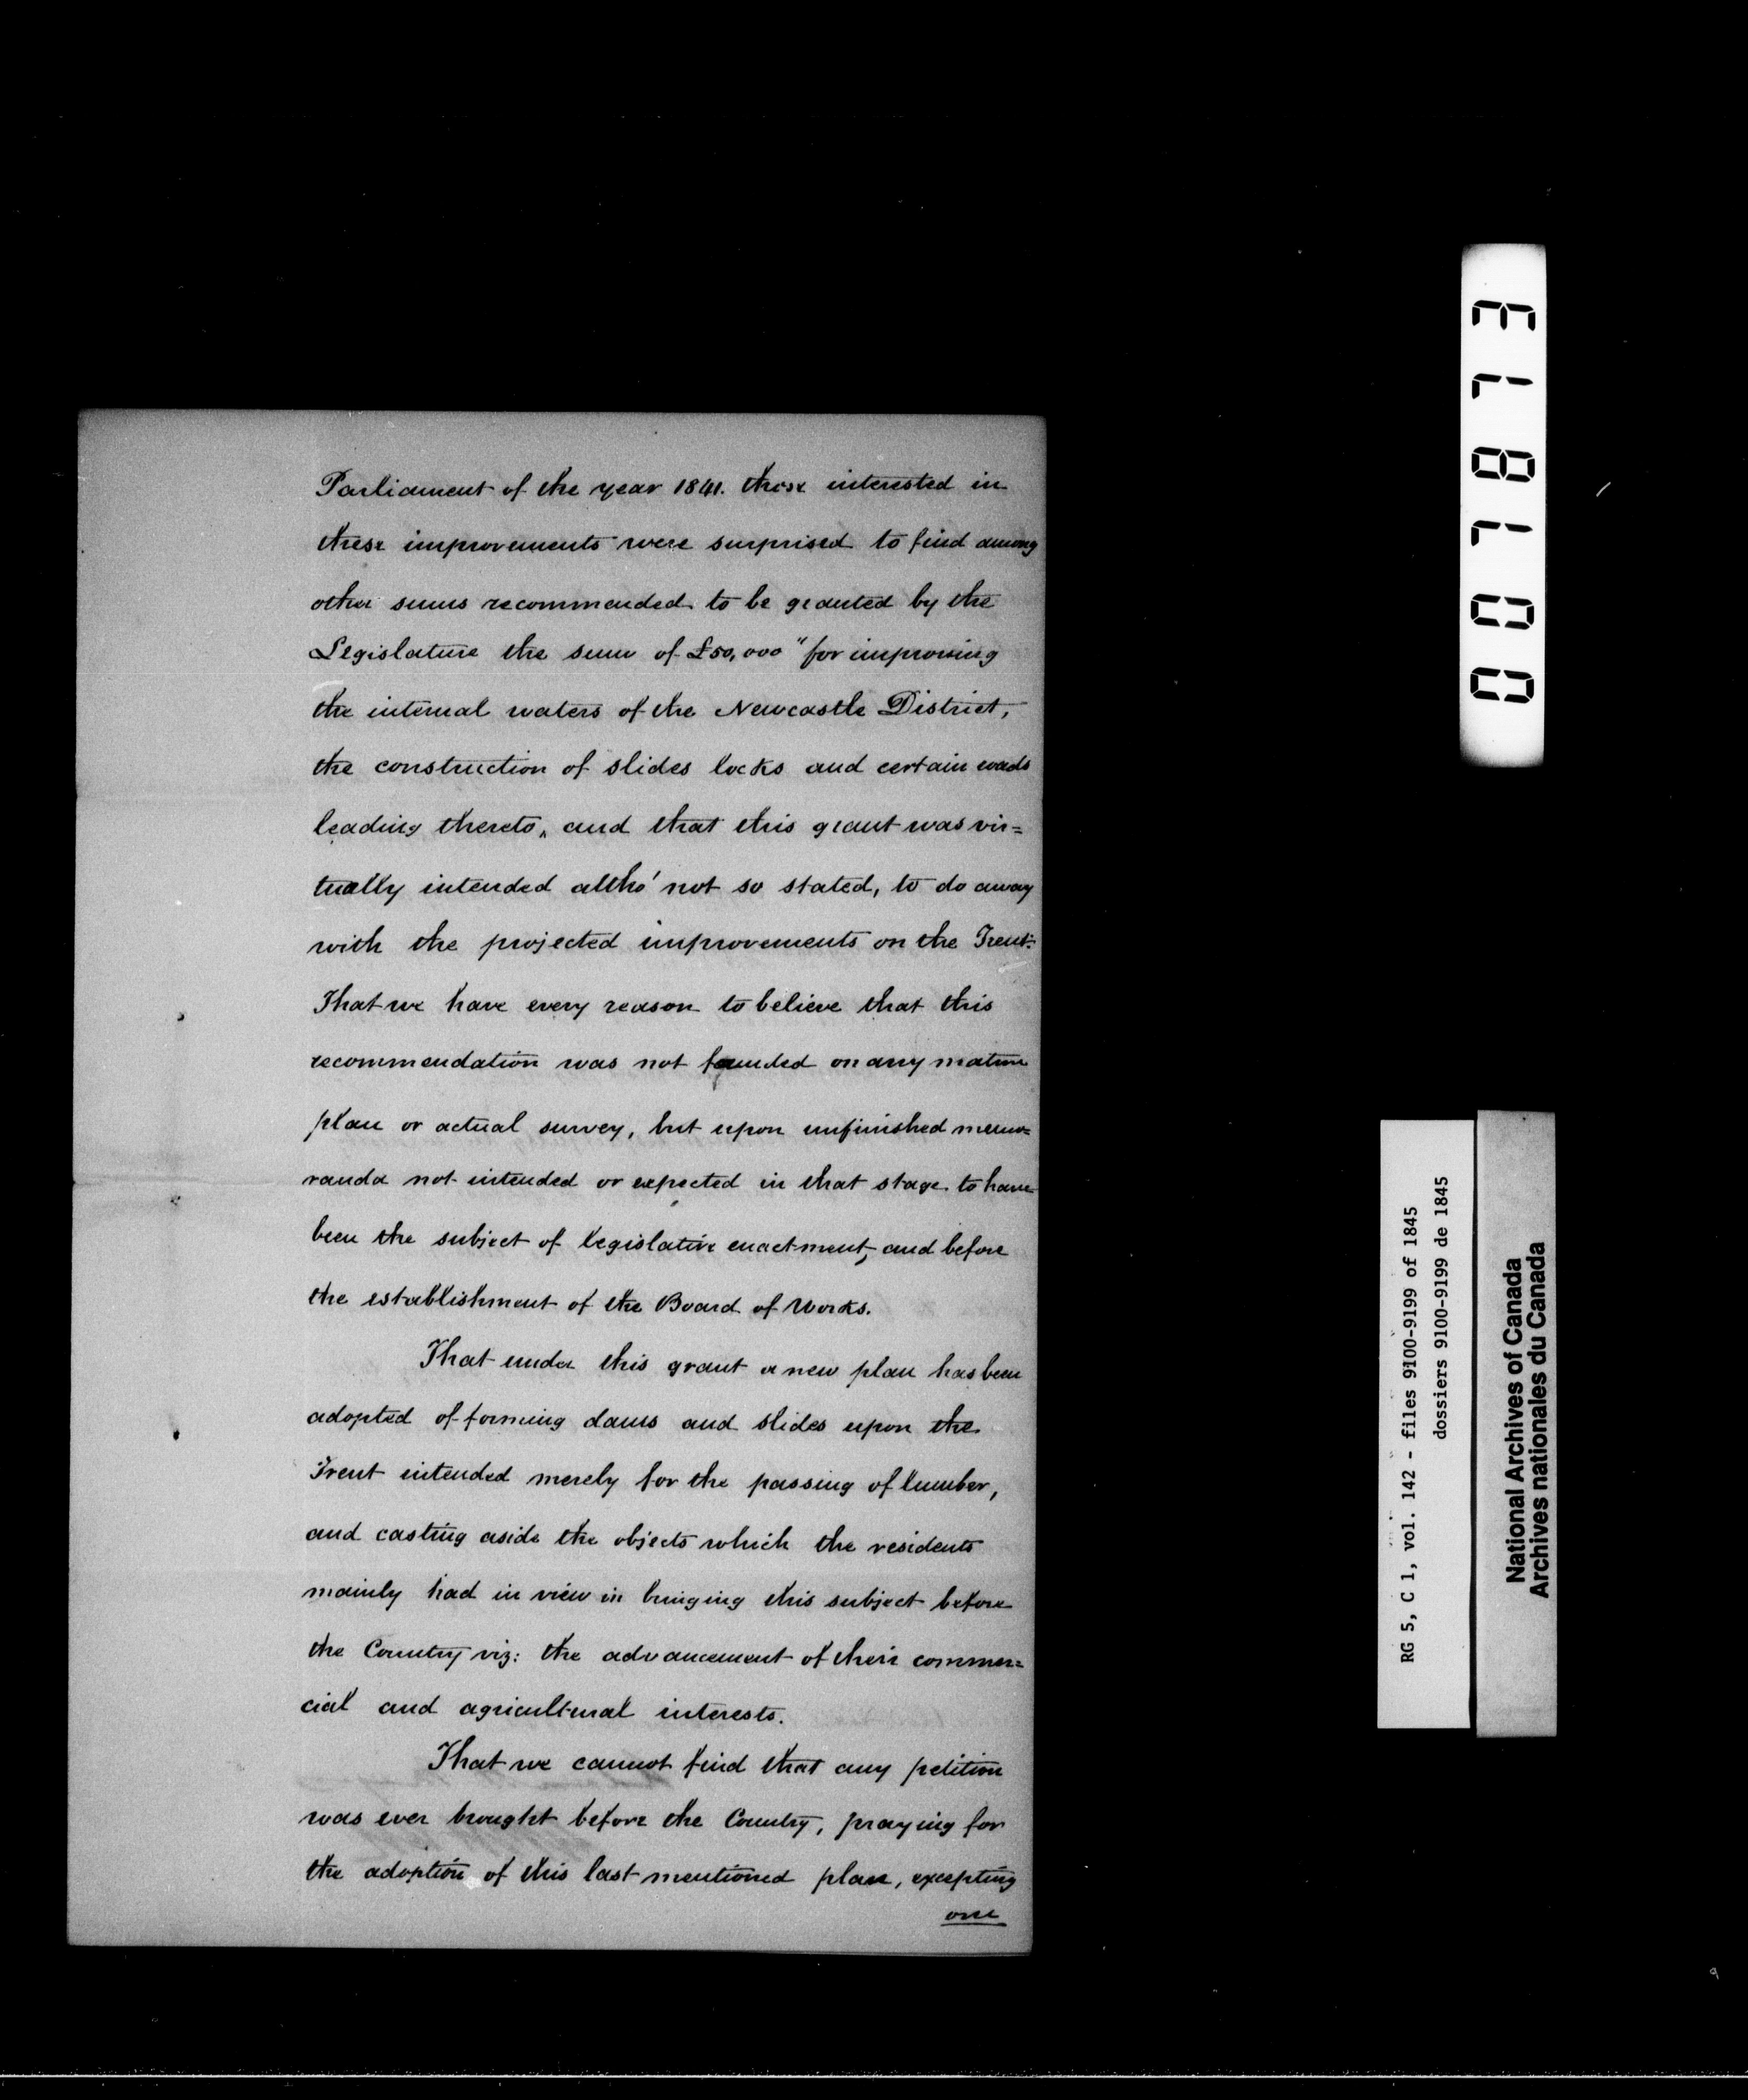 Parliament of the year 1841. those interested in
these improvements were surprised to find among
other sums recommended to be granted by the
Legislature the sum of £50,000 "for improving
the internal waters of the Newcastle District,
the construction of slides locks and certain roads
leading thereto„ and that this grant was vir=
tually intended altho' not so stated, to do away
with the projected improvements on the Trent:
That we have every reason to believe that this
recommendation was not founded on any mature
plan or actual survey, but upon unfinished memo=
randa not intended or expected in that stage to have
been the subject of legislative enactment, and before
the establishment of the Board of Works.
That under this grant a new plan has been
adopted of forming dams and slides upon the
Trent intended merely for the passing of lumber,
and casting aside the objects which the residents
mainly had in view in bringing this subject before
the Country viz: the advancement of their commer=
cial and agricultural interests.
That we cannot find that any petition
was ever brought before the Country, praying for
the adoption of this last mentioned plan, excepting
one
001873
RG 5, C 1, vol. 142 - files 9100-9199 of 1845
dossiers 9100-9199 de 1845
National Archives of Canada
Archives nationales du Canada